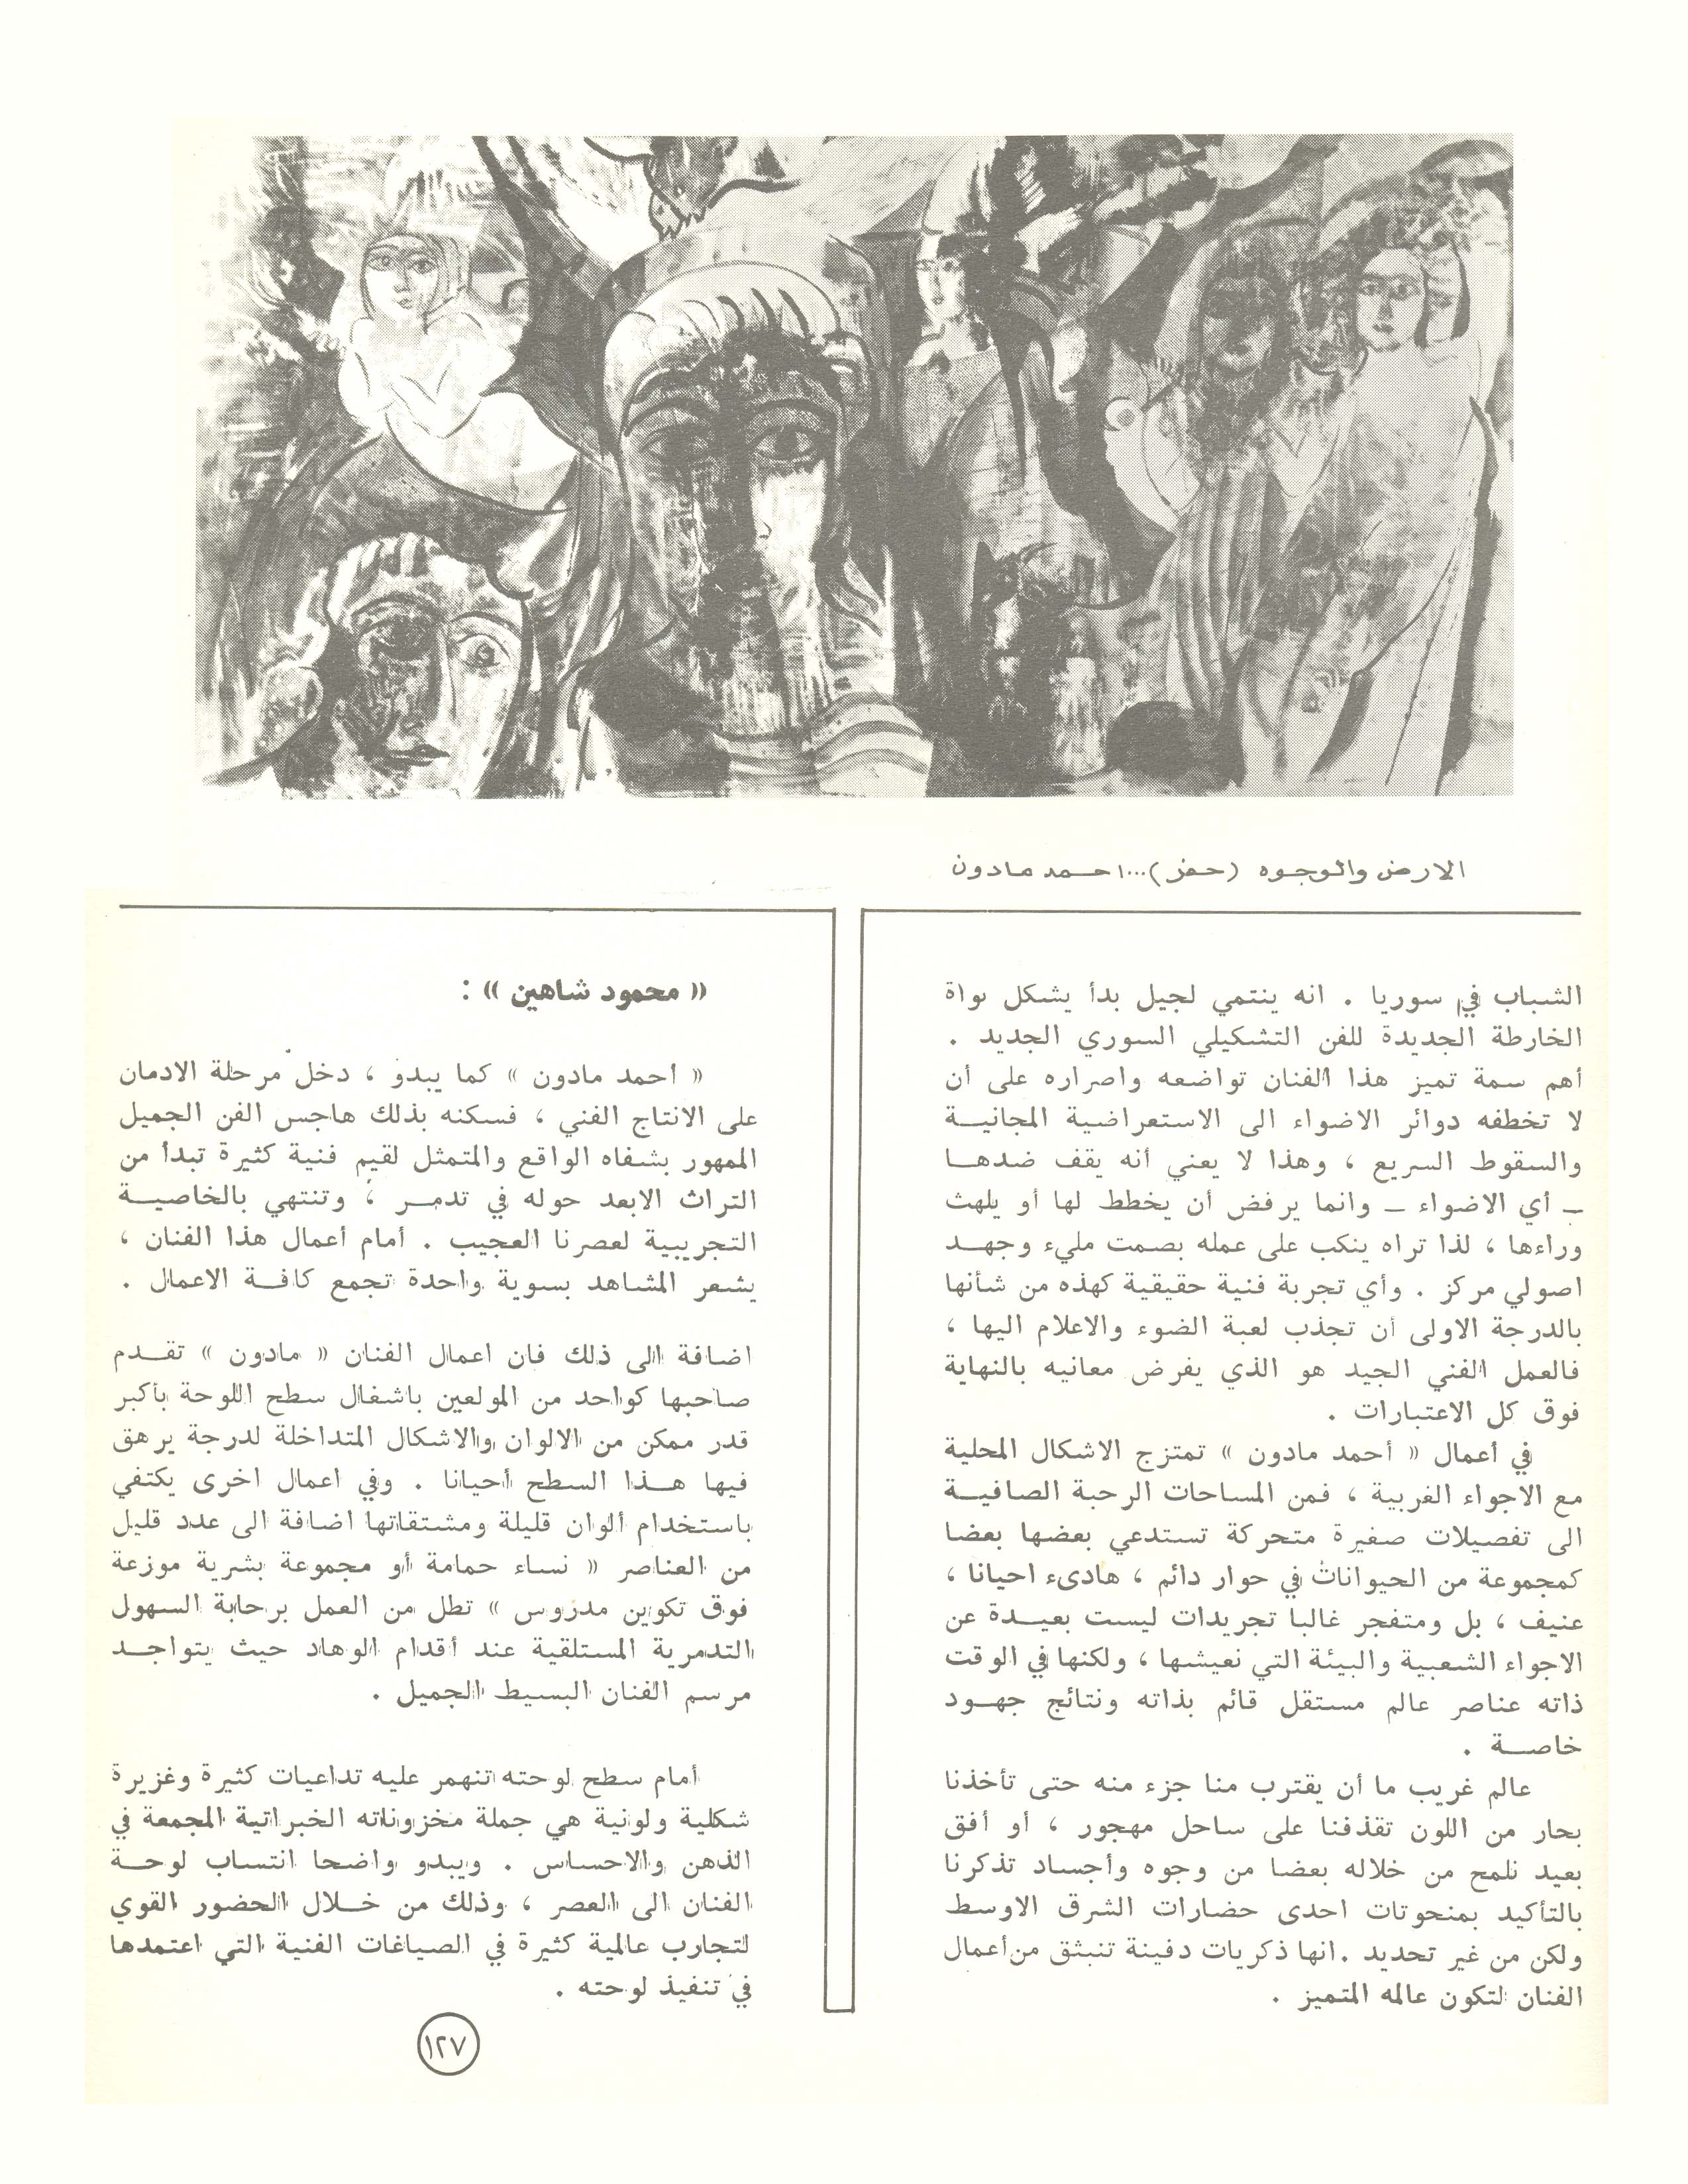 الارض والوجوه (حفر)...احمد مادون
الشباب في سوريا . انه ينتمي لجيل بدأ يشكل نواة
الخارطة الجديدة للفن التشكيلي السوري الجديد .
أهم سمة تميز هذا الفنان تواضعه واصراره على أن
لا تخطفه دوائر الاضواء الى الاستعراضية المجانية
والسقوط السريع ، وهذا لا يعني أنه يقف ضدها
– أي الاضواء – وانما يرفض أن يخطط لها أو يلهث
وراءها ، لذا تراه ينكب على عمله بصمت مليء وجهد
اصولي مركز . وأي تجربة فنية حقيقية كهذه من شأنها
بالدرجة الاولى أن تجذب لعبة الضوء والاعلام اليها ،
فالعمل الفني الجيد هو الذي يفرض معانيه بالنهاية
فوق كل الاعتبارات .
في أعمال « أحمد مادون » تمتزج الاشكال المحلية
مع الاجواء الغربية ، فمن المساحات الرحبة الصافية
الى تفصيلات صغيرة متحركة تستدعي بعضها بعضا
كمجموعة من الحيوانات في حوار دائم ، هادىء احيانا ،
عنيف ، بل ومتفجر غالبا تجريدات ليست بعيدة عن
الاجواء الشعبية والبيئة التي نعيشها ، ولكنها في الوقت
ذاته عناصر عالم مستقل قائم بذاته ونتائج جهود
خاصة .
عالم غريب ما أن يقترب منا جزء منه حتى تأخذنا
بحار من اللون تقذفنا على ساحل مهجور ، أو أفق
بعيد نلمح من خلاله بعضا من وجوه وأجساد تذكرنا
بالتأكيد بمنحوتات احدى حضارات الشرق الاوسط
ولكن من غير تحديد . انها ذكريات دفينة تنبثق من أعمال
الفنان لتكون عالمه المتميز .
« محمود شاهين » :
« أحمد مادون » كما يبدو ، دخل مرحلة الادمان
على الانتاج الفني ، فسكنه بذلك هاجس الفن الجميل
الممهور بشفاه الواقع والمتمثل لقيم فنية كثيرة تبدأ من
التراث الابعد حوله في تدمر ، وتنتهي بالخاصية
التجريبية لعصرنا العجيب . أمام أعمال هذا الفنان ،
يشعر المشاهد بسوية واحدة تجمع كافة الاعمال .
اضافة الى ذلك فان اعمال الفنان « مادون » تقدم
صاحبها كواحد من المولعين باشغال سطح اللوحة بأكبر
قدر ممكن من الالوان والاشكال المتداخلة لدرجة يرهق
فيها هذا السطح أحيانا . وفي اعمال اخرى يكتفي
باستخدام ألوان قليلة ومشتقاتها اضافة الى عدد قليل
من العناصر « نساء حمامة أو مجموعة بشرية موزعة
فوق تكوين مدروس » تطل من العمل برحابة السهول
التدمرية المستلقية عند أقدام الوهاد حيث يتواجد
مرسم الفنان البسيط الجميل .
أمام سطح لوحته تنهمر عليه تداعيات كثيرة وغزيرة
شكلية ولونية هي جملة مخزوناته الخبراتية المجمعة في
الذهن والاحساس . ويبدو واضحا انتساب لوحة
الفنان الى العصر ، وذلك من خلال الحضور القوي
لتجارب عالمية كثيرة في الصياغات الفنية التي اعتمدها
في تنفيذ لوحته .
١٢٧